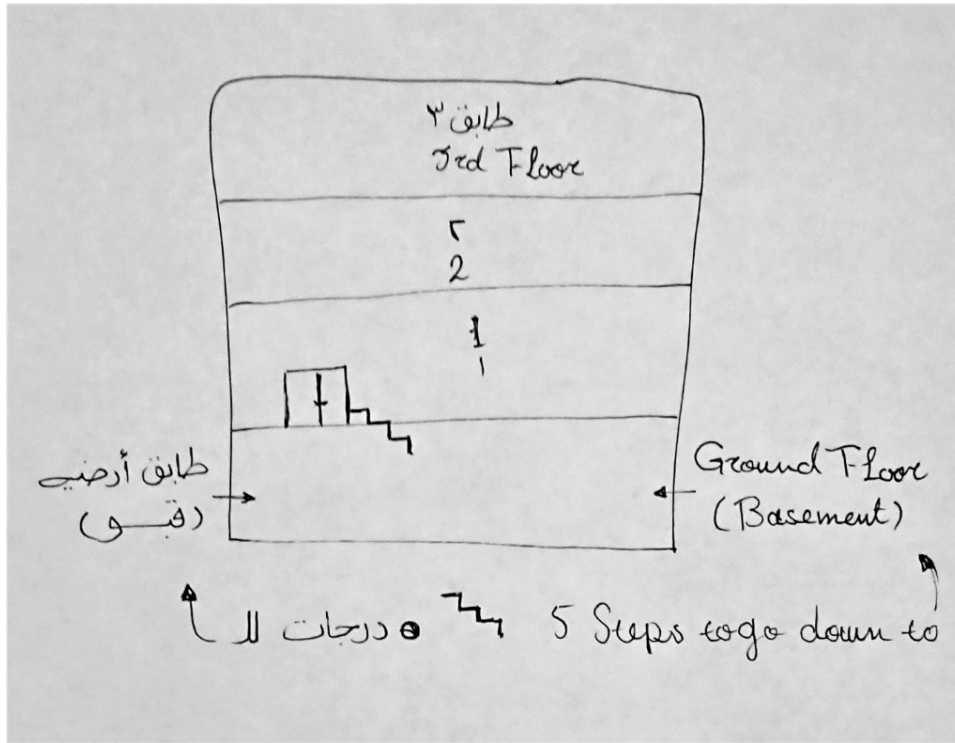 طابق ٣
3rd Floor
٢
2
1
١
طابق أرضي
(قبو)
Ground Floor
(Basement)
٥ درجات للـ
5 Steps to go down to